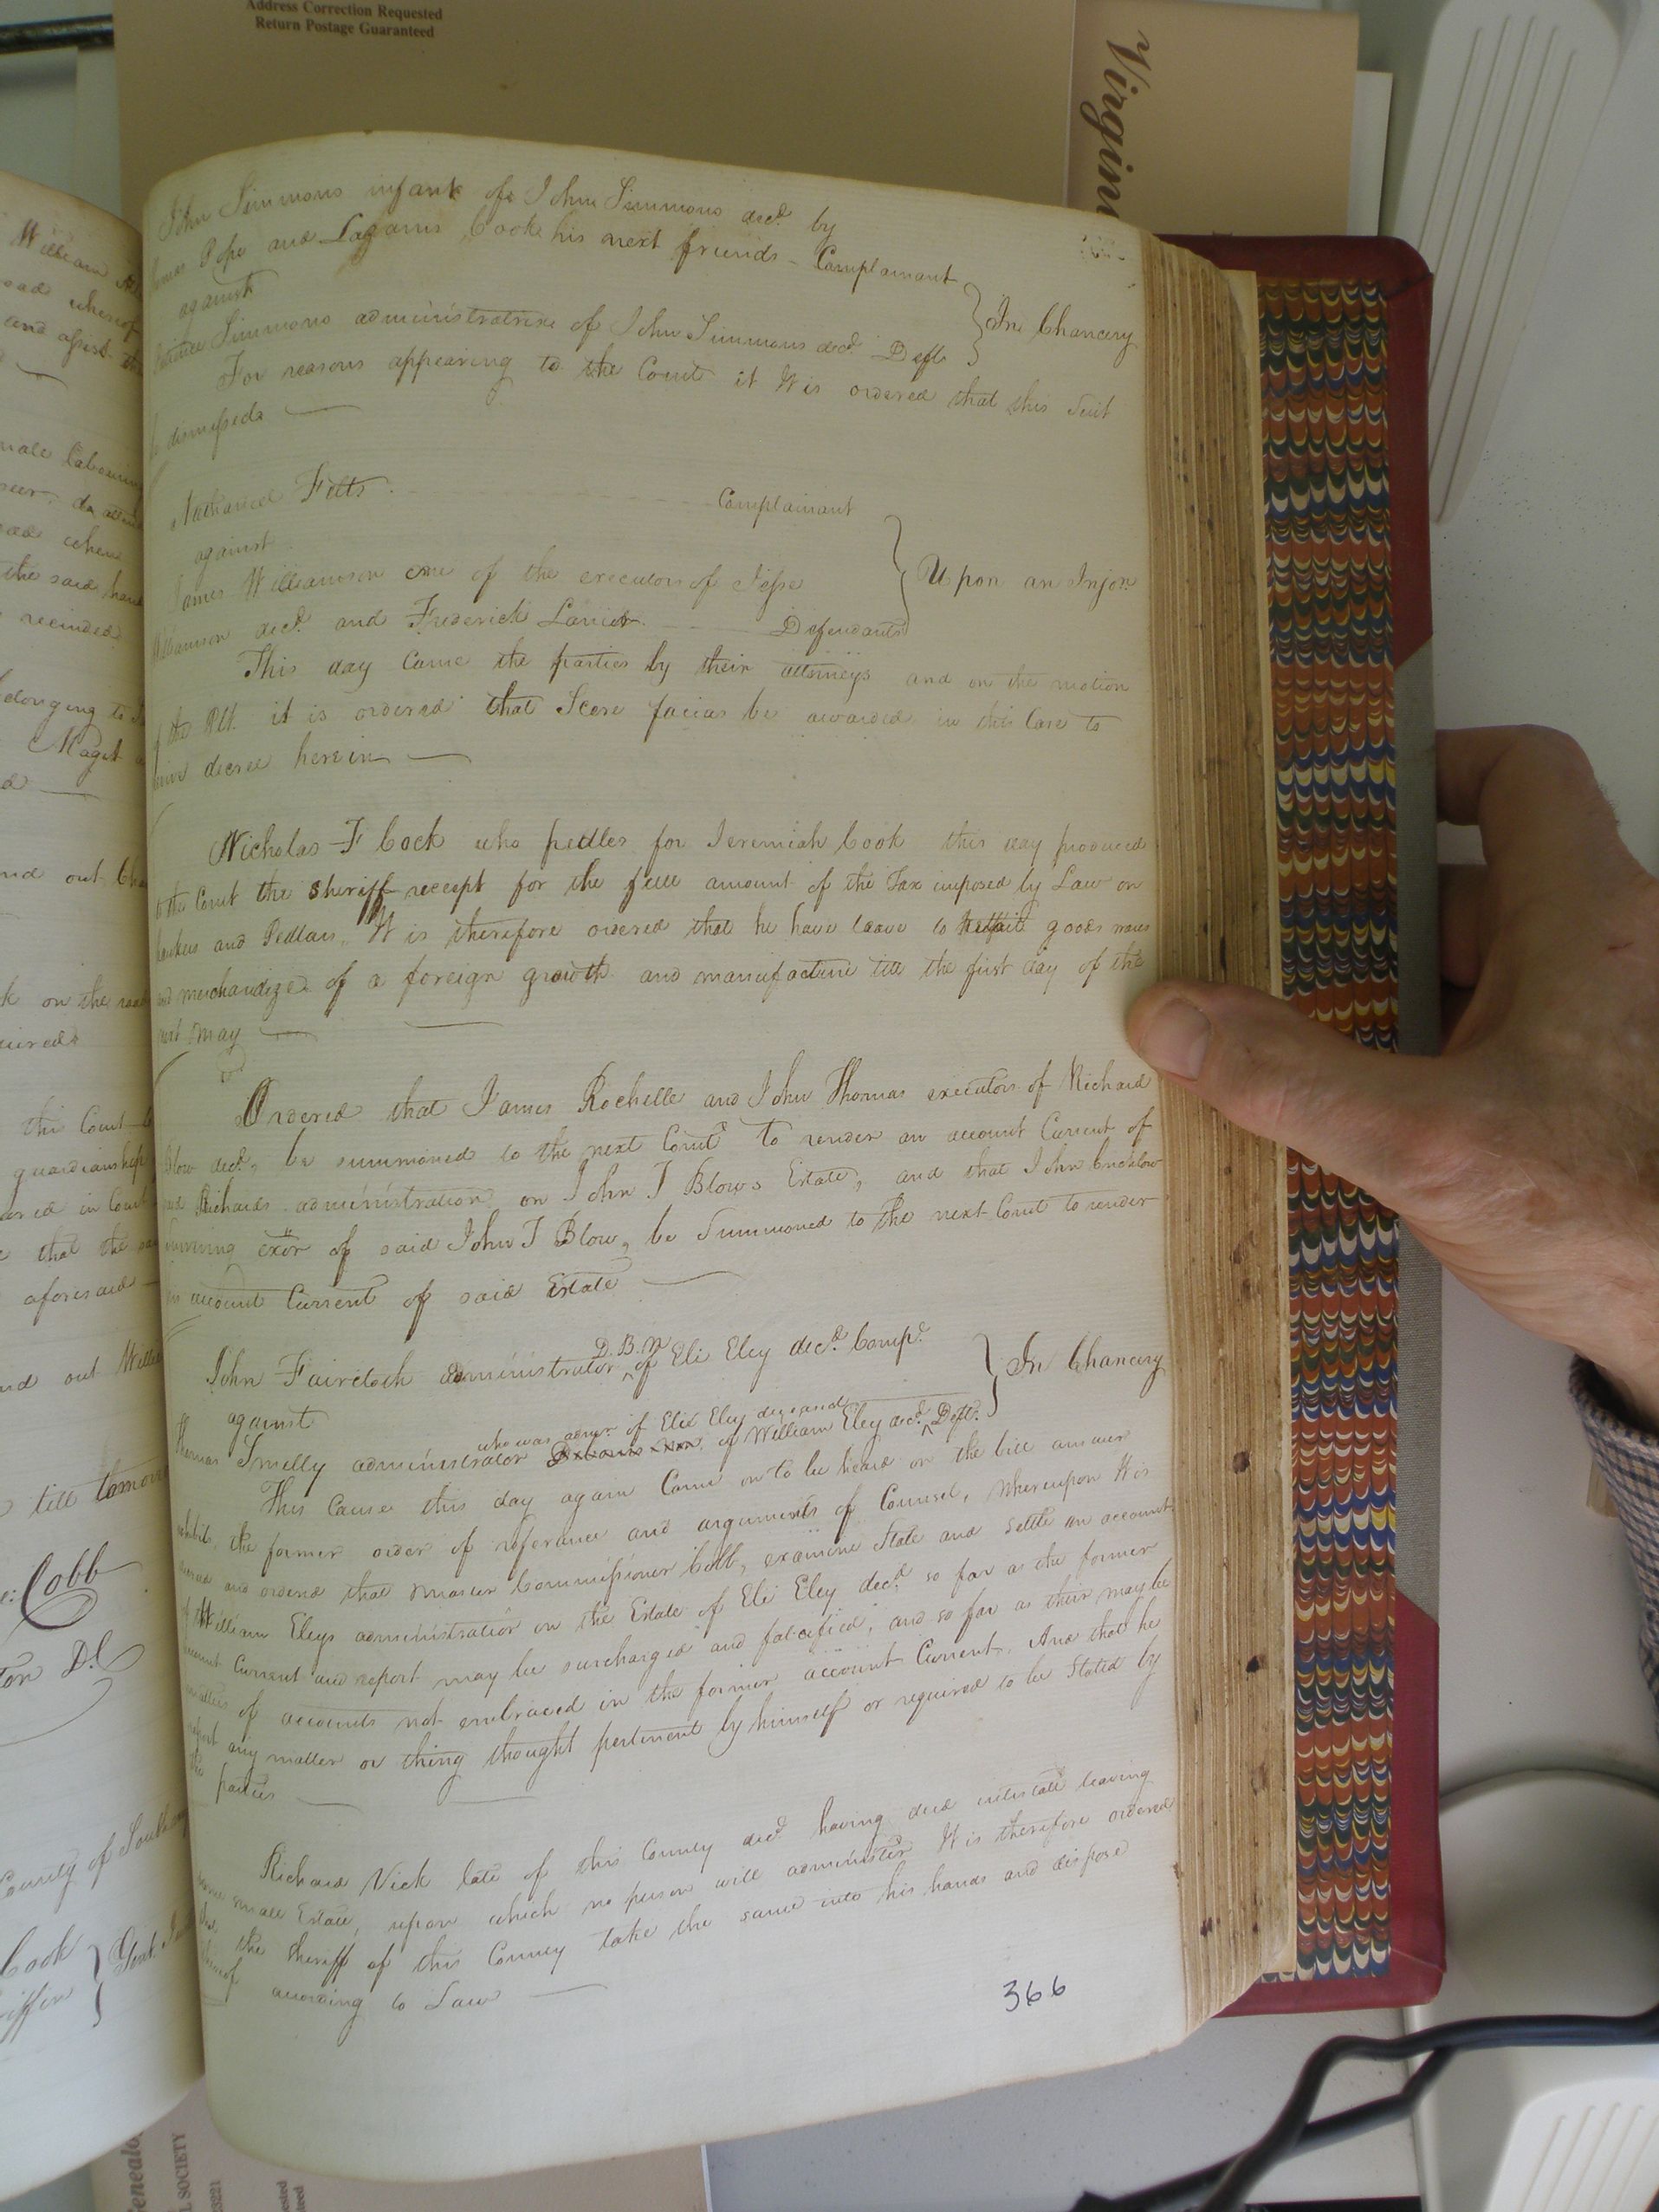 Address Correction Requested
Return Postage Guaranteed
Virgin
John Simmons infant of John Simmons decd. by
Pope and Lazarus Cook his next friends - Complainant
against
Simmons administratrix of John Simmons decd. Deft.
In Chancery
For reasons appearing to the Court it is ordered that this Suit
be dismissed
Nathaniel Felts Complainant
against
James Williamson one of the executors of Jesse
Williamson decd. and Frederick Lanier Defendants
Upon an Injon.
This day came the parties by their attorneys and on the motion
of the Plt. it is ordered that Scere facias be awarded in this Case to
decree herein
Nicholas F Cock who pedles for Jeremiah Cook this day produced
to the Court the Sheriff receipt for the full amount of the Tax imposed by Law on
hawkers and Pedlars. It is therefore ordered that he have leave to goods wares
and merchandize of a foreign growth and manufacture till the first day of the
next May
Ordered that James Rochelle and John Thomas executors of Richard
Blow decd, be summoned to the next Court To render an account Current of
said Richards administration on John T Blows Estate, and that John
surviving exor of said John T Blow, be Summoned to the next Court to render
his account Current of said Estate
John Faircloth administrator D.B.N of Eli Eley decd. Compt.
against
Thomas Smelly administrator of William Eley decd. who was admr. of Eli Eley deceased Deft.
In Chancery
This Cause this day again Came on to be heard on the bill answer
exhibits, the former order of referance and arguments of Counsel, Whereupon It is
decreed and ordered that Master Commissioner Cobb, examine State and settle an account
of William Eleys administration on the Estate of Eli Eley decd. so far as the former
account Current and report may be surcharged and falcified, and so far as their may be
matters of accounts not embraced in the former account Current. And that he
report any matter or thing thought pertinent by himself or required to be Stated by
the parties
Richard Vick late of this County decd. having died intestate leaving
some small Estate, upon which no person will administer It is therefore ordered
that the Sheriff of this County take the same into his hands and dispose
thereof according to Law
366
William
and assist
belonging to
Maget
and out
on the road
this Court
guardianship
in Court
that the
aforesaid
and out
till tomorrow
Cobb
County of
Cook
L SOCIETY
23221